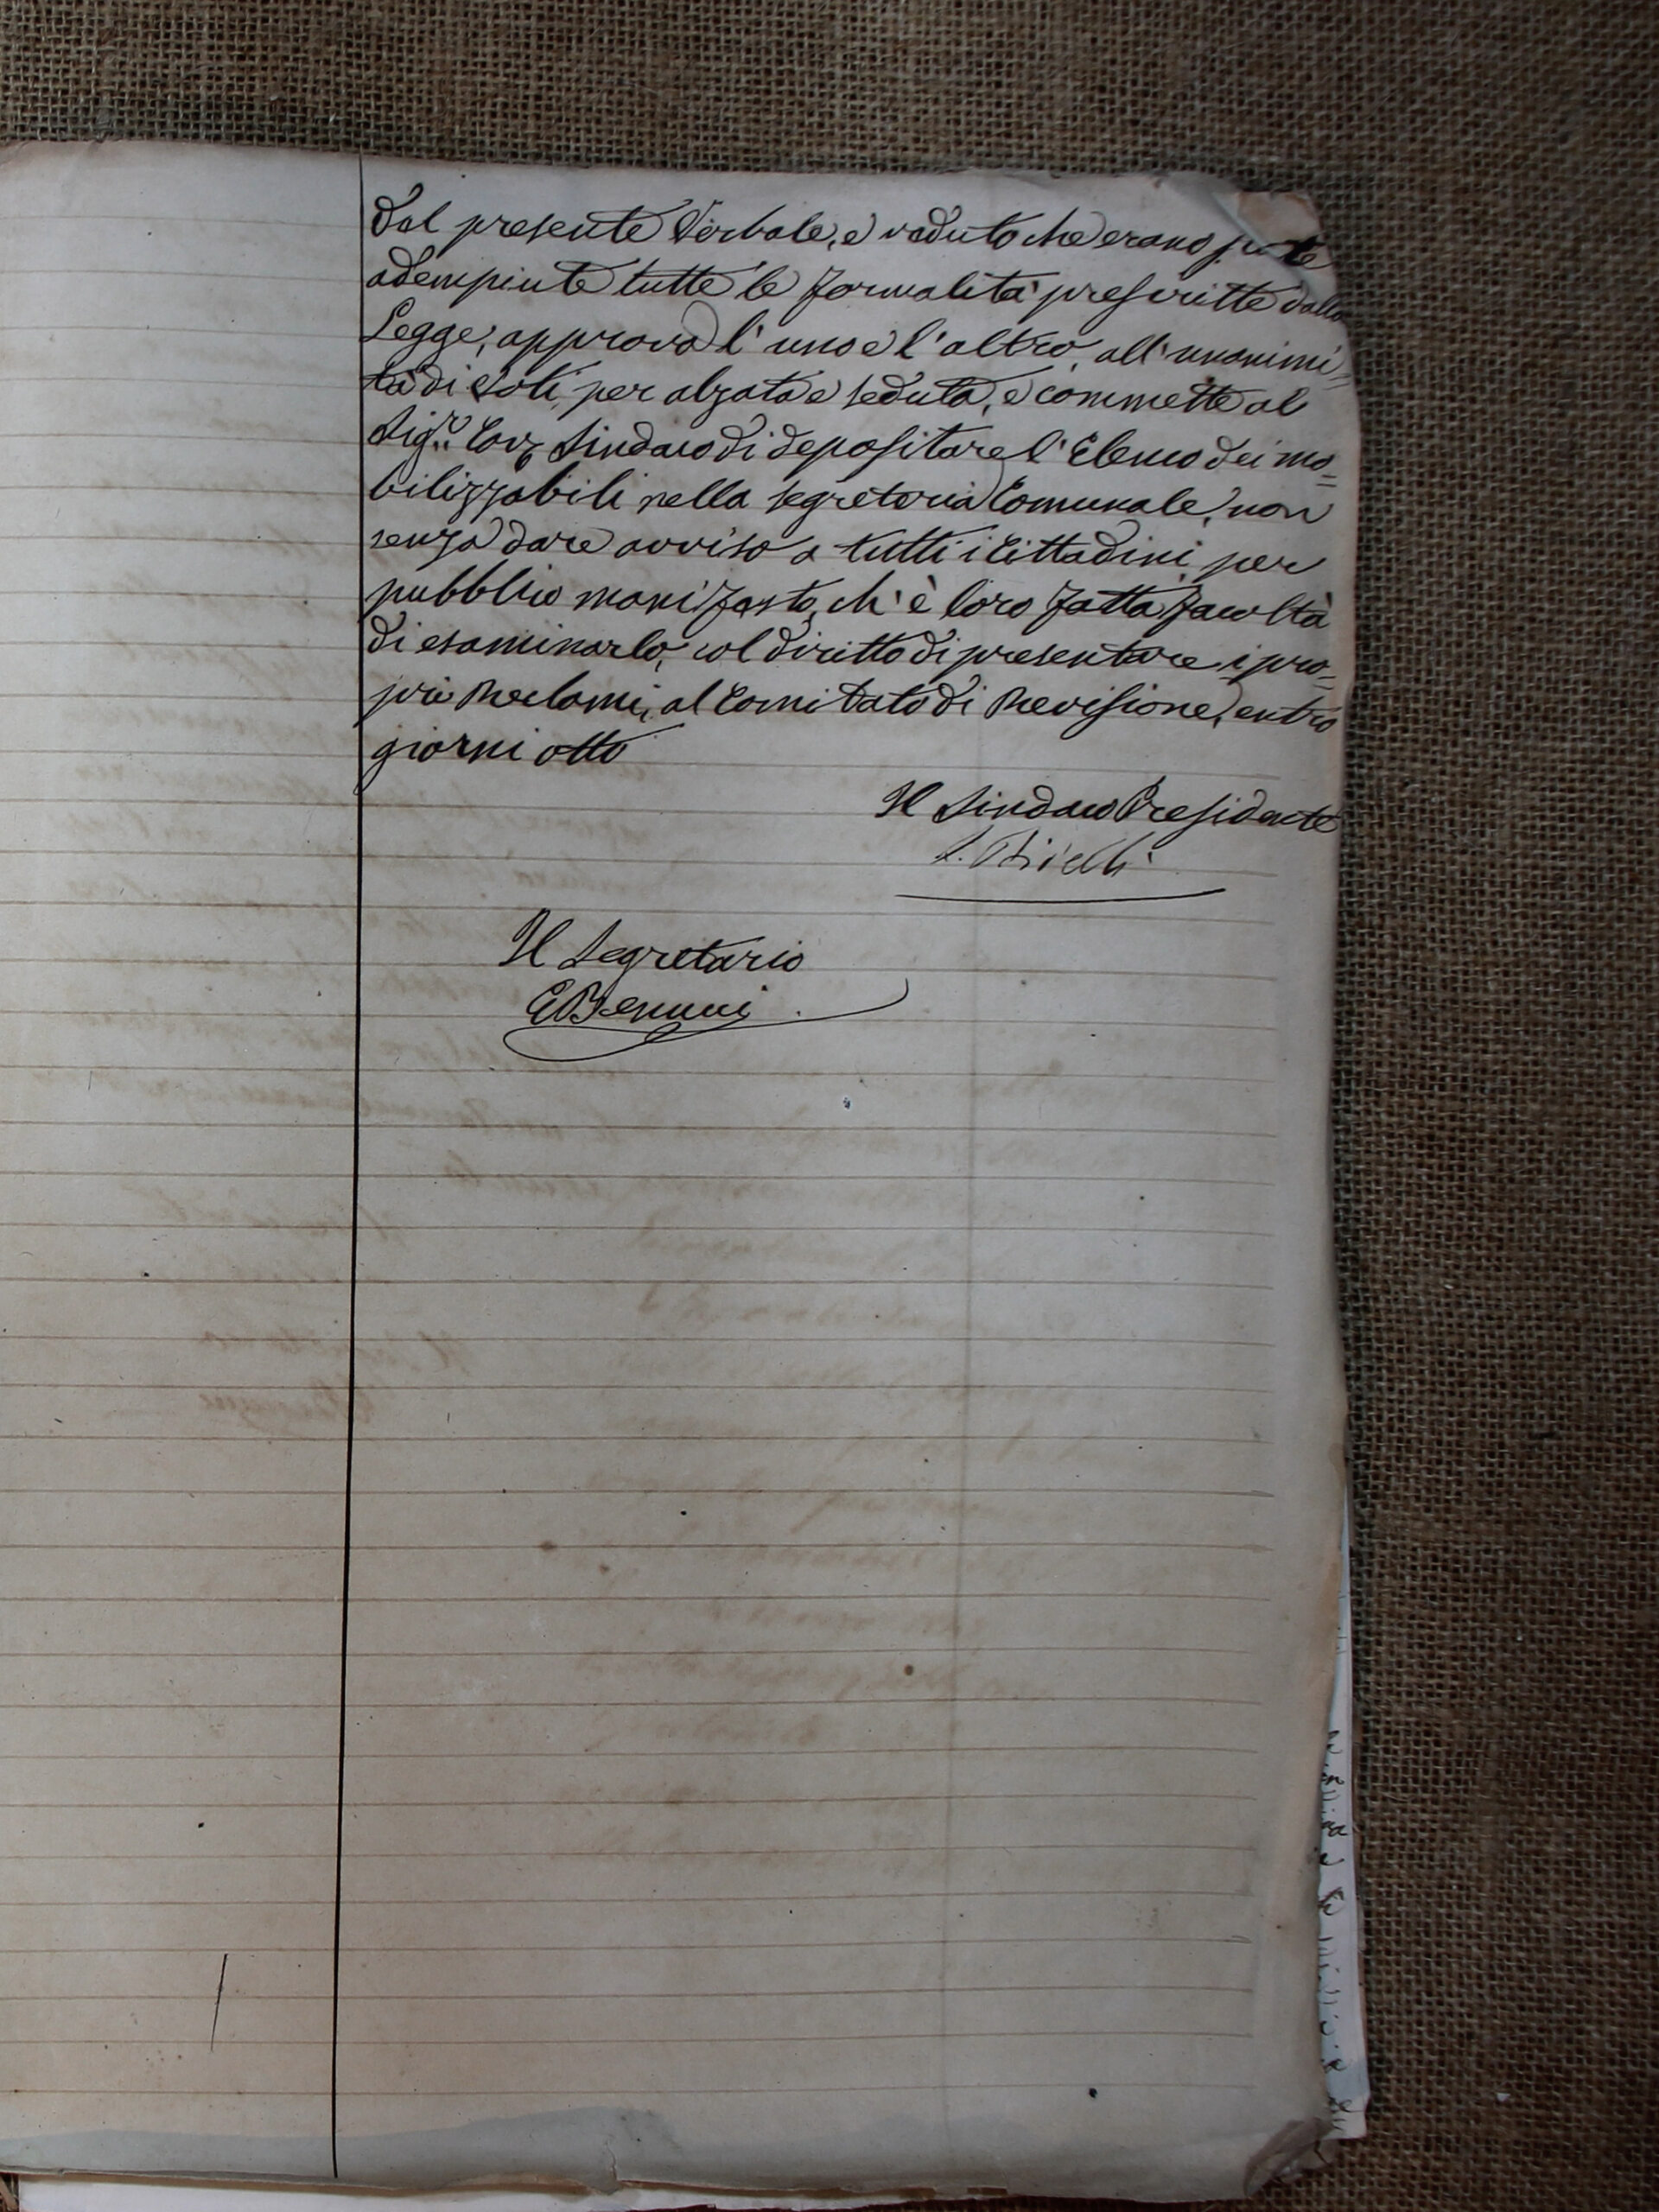 dal presente Verbale, e veduto che erano state
adempiute tutte le formalità prescritte dalla
Legge, approva l'uno e l'altro, all'unanimi=
tà di voti, per alzata e seduta, e commette al
Sigr. Cav. Sindaco di depositare l'Elenco dei mo=
bilizzabili nella segreteria Comunale, non
senza dare avviso a tutti i Cittadini, per
pubblico manifesto, ch'è loro fatta facoltà
di esaminarlo, col diritto di presentare i pro=
prii Reclami, al Comitato di Revisione, entro
giorni otto
Il Sindaco Presidente
Il Segretario